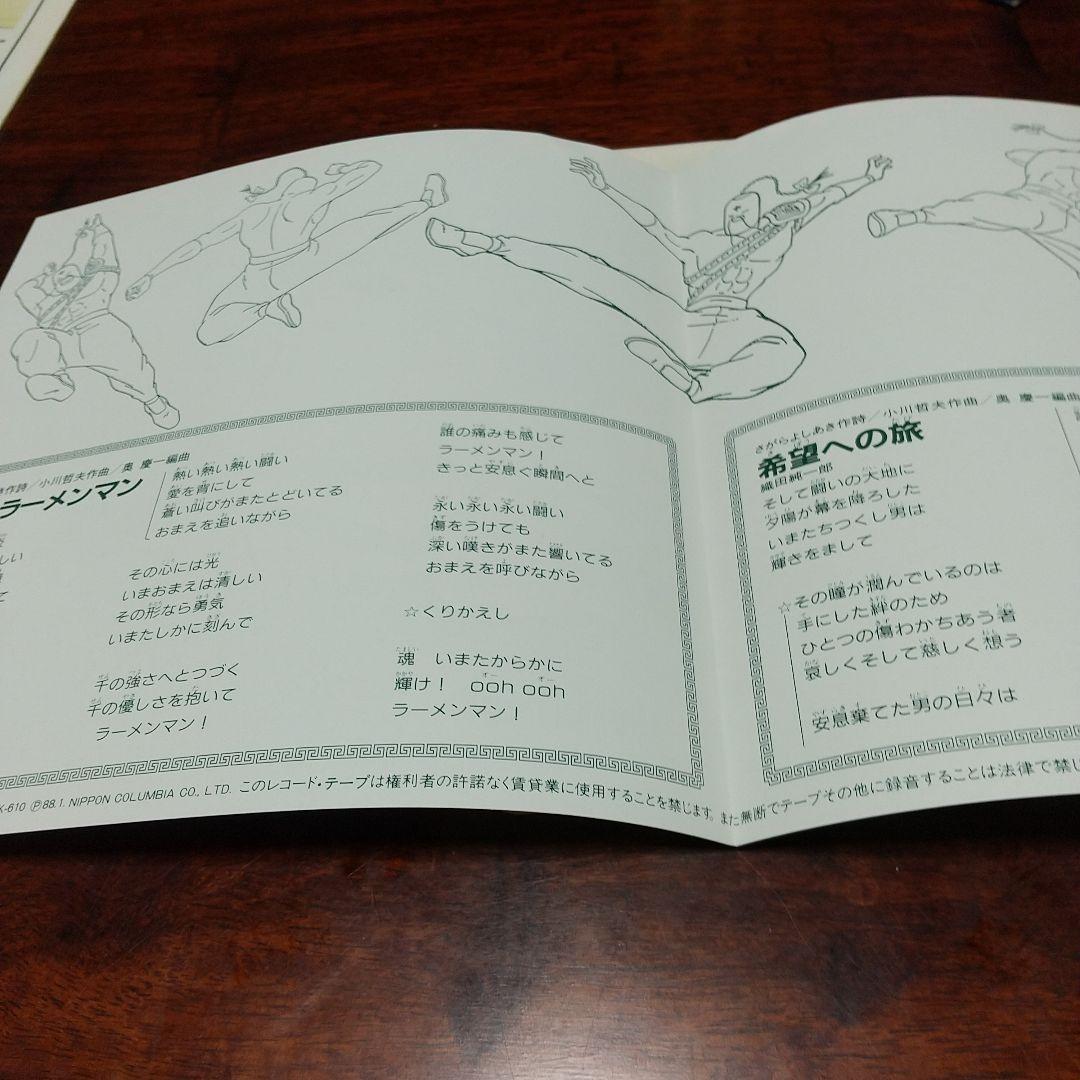 作詩／小川哲夫作曲／奥 慶一編曲
ラーメンマン
しい
て
熱い熱い熱い闘い
愛を背にして
蒼い叫びがまたとどいてる
おまえを追いながら
その心には光
いまおまえは清しい
その形なら勇気
いまたしかに刻んで
千の強さへとつづく
千の優しさを抱いて
ラーメンマン！
誰の痛みも感じて
ラーメンマン！
きっと安息ぐ瞬間へと
永い永い永い闘い
傷をうけても
深い嘆きがまた響いてる
おまえを呼びながら
☆くりかえし
魂 いまたからかに
輝け！ ooh ooh
ラーメンマン！
さがらよしあき作詩／小川哲夫作曲／奥 慶一編曲
希望への旅
織田純一郎
そして闘いの大地に
夕陽が幕を降ろした
いまたちつくし男は
輝きをまして
☆その瞳が潤んでいるのは
手にした絆のため
ひとつの傷わかちあう者
哀しくそして慈しく想う
安息棄てた男の日々は
K-610 Ⓟ88.1. NIPPON COLUMBIA CO., LTD. このレコード・テープは権利者の許諾なく賃貸業に使用することを禁じます。また無断でテープその他に録音することは法律で禁じ